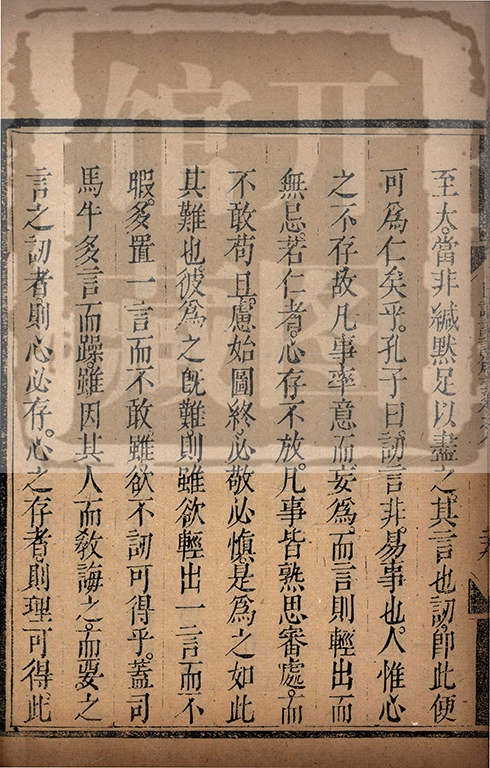 至大當非緘默足以盡之其言也訒即此便
可為仁矣乎孔子曰訒言非易事也人惟心
之不存故凡事率意而妄為而言則輕出而
無忌若仁者心存不放凡事皆熟思審處而
不敢苟且慮始圖終必敬必慎是為之如此
其難也彼為之既難則雖欲輕出一言而不
暇多置一言而不敢雖欲不訒可得乎蓋司
馬牛多言而躁雖因其人而敎誨之而要之
言之訒者則心必存心之存者則理可得此